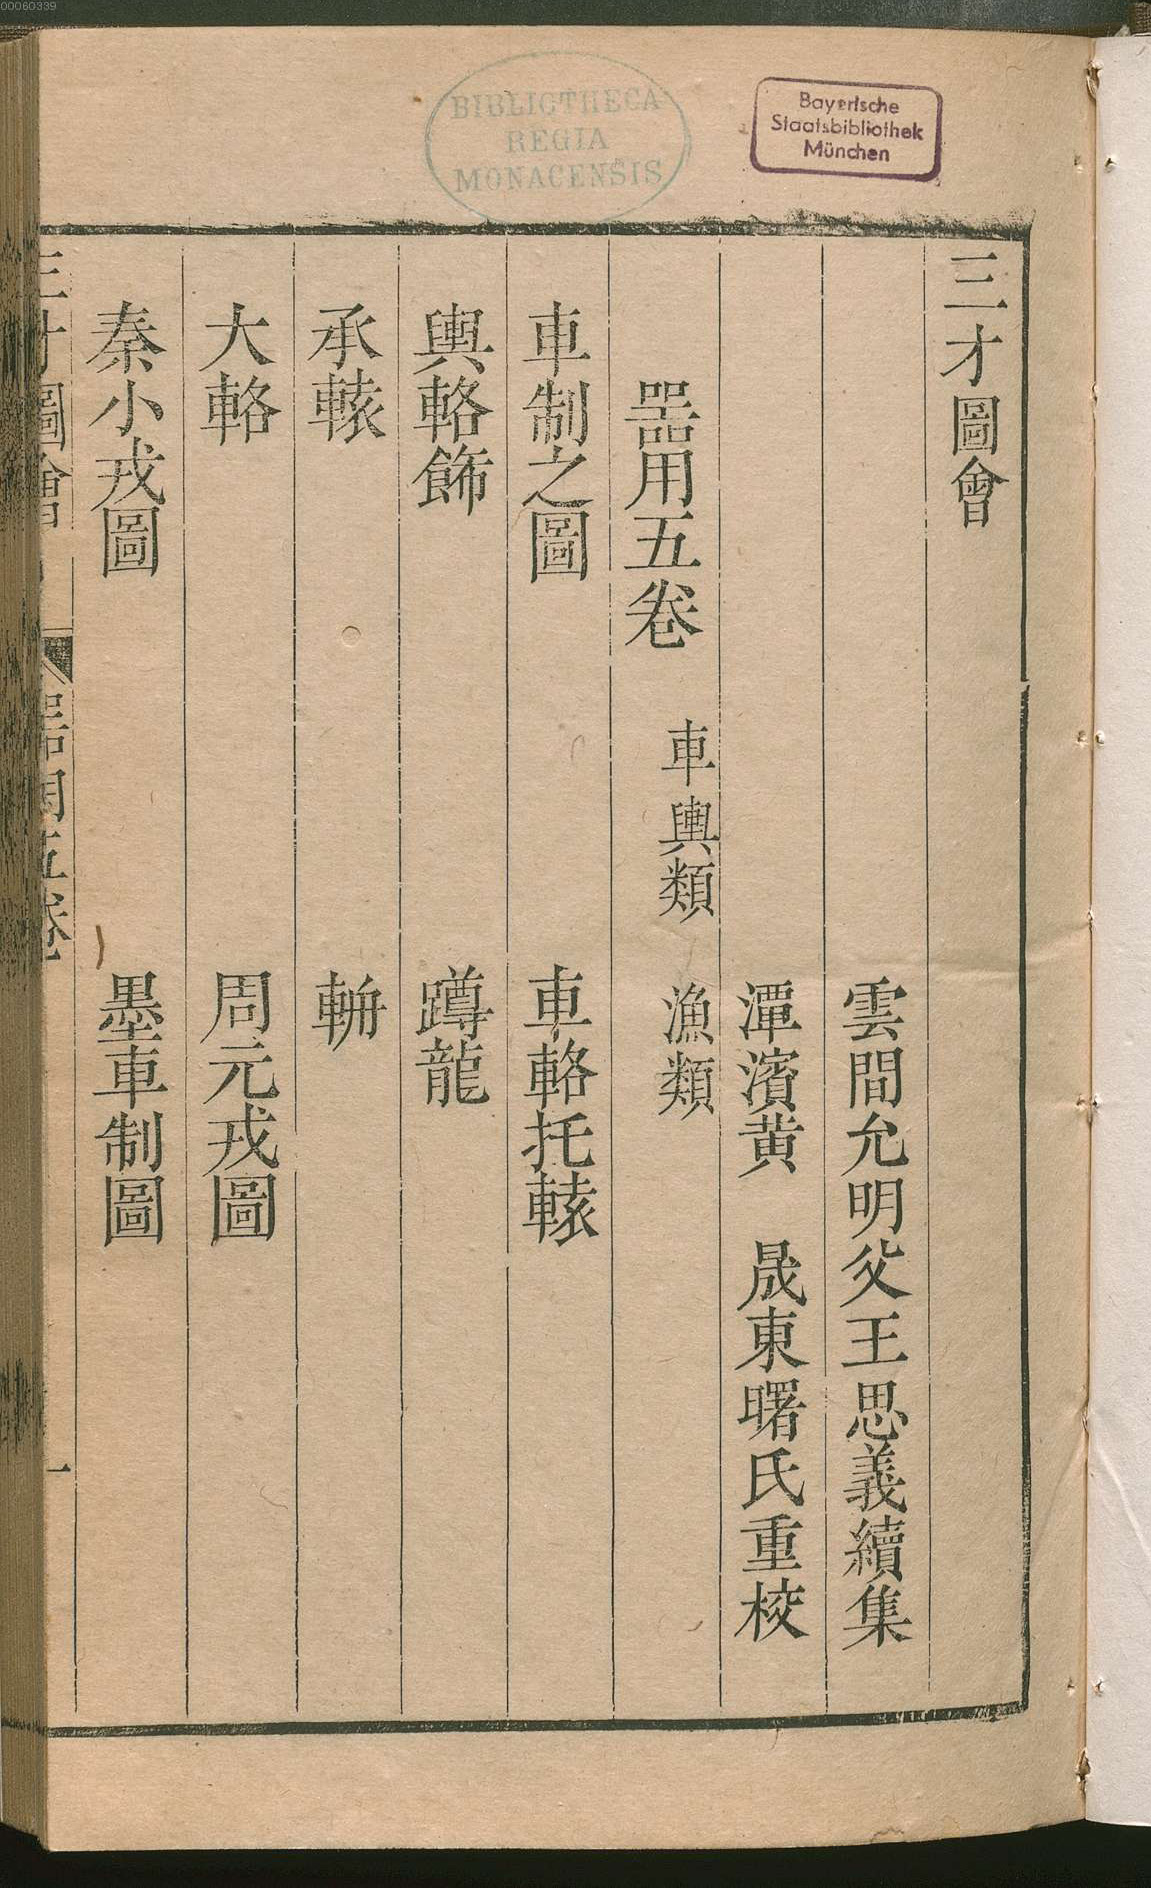 00060339
BIBLIOTHECA
REGIA
MONACENSIS
Bayerische
Staatsbibliothek
München
三才圖會
雲間允明父王思義續集
潭濱黃 晟東曙氏重校
器用五卷 車輿類 漁類
車制之圖 車輅托轅
輿輅飾 蹲龍
承轅 輧
大輅 周元戎圖
秦小戎圖 墨車制圖
三才圖會 器用五卷 一